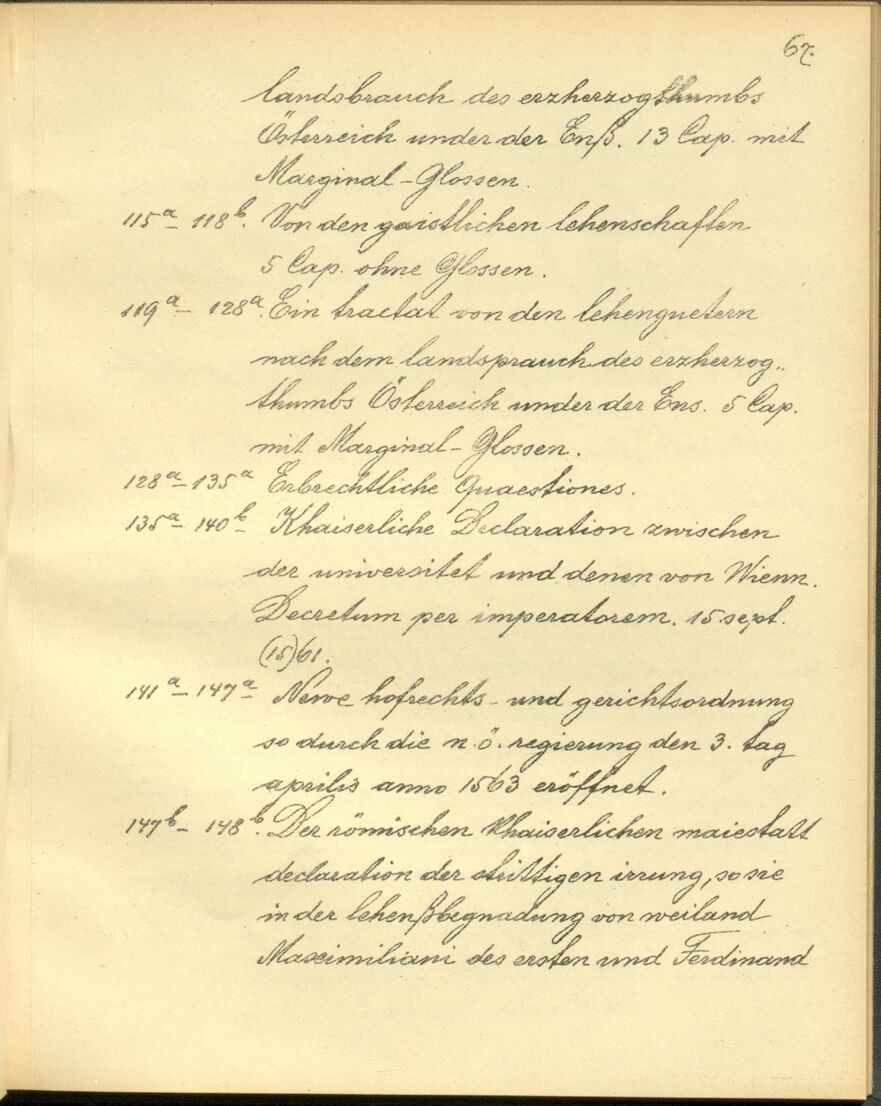 67.
landsbrauch des erzherzogthumbs
Österreich under der Enß. 13 Cap. mit
Marginal-Glossen.
115a – 118b. Von den gaistlichen lehenschaften
5 Cap. ohne Glossen.
119a – 128a. Ein tractat von den lehenguetern
nach dem landsprauch des erzherzog„
thumbs Österreich under der Ens. 5 Cap.
mit Marginal-Glossen.
128a – 135a Erbrechtliche Quaestiones.
135a – 140b – Khaiserliche Declaration zwischen
der universitet und denen von Wienn.
Decretum per imperatorem. 15. sept.
(15)61.
141a – 147a Newe hofrechts- und gerichtsordnung
so durch die n. ö. regierung den 3. tag
aprilis anno 1563 eröffnet.
147b – 148b. Der römischen khaiserlichen maiestatt
declaration der strittigen irrung, so sie
in der lehenßbegnadung von weiland
Maximiliani des ersten und Ferdinand